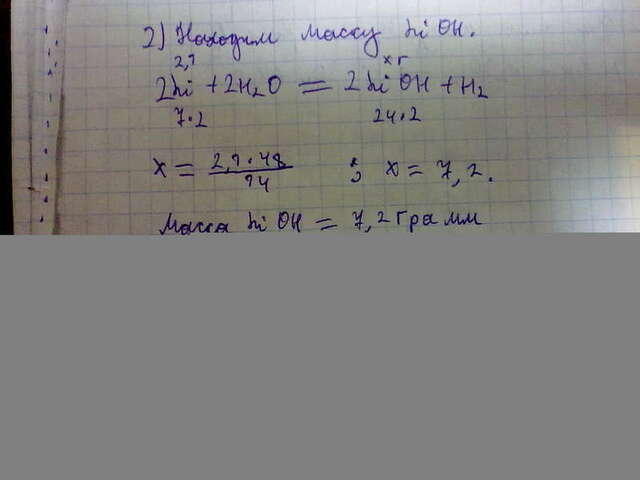 2) Находим массу Li OH.
2,1 x г
2Li + 2H₂O = 2Li OH + H₂
7·2 24·2
x = 2,1·48 / 14 ; x = 7,2.
Масса Li OH = 7,2 грамм